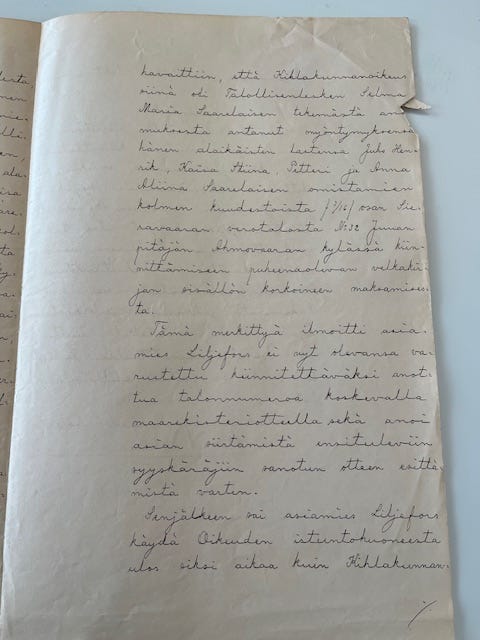 havaittiin, että Kihlakunnanoikeus
siinä oli Talollisenlesken Selma
Maria Saarelaisen tekemästä ano-
muksesta antanut myöntymyksensä
hänen alaikäisten lastensa Juho Hen-
rik, Kaisa Stiina, Petteri ja Anna
Aliina Saarelaisen omistamien
kolmen kuudestoista /3/16/ osan Sie-
ravaaran verotalosta No 32 Juuan
pitäjän Ahmovaaran kylässä kiin-
nittämiseen puheenaolevan velkakir-
jan sisällön korkoineen maksamises-
ta.
Tämä merkittyä ilmoitti asia-
mies Liljefors ei nyt olevansa va-
rustettu kiinnitettäväksi anot-
tua talonnumeroa koskevalla
maarekisteriotteella sekä anoi
asian siirtämistä ensituleviin
syyskäräjiin sanotun otteen esittä-
mistä varten.
Senjälkeen sai asiamies Liljefors
käydä Oikeuden istuntohuoneesta
ulos siksi aikaa kuin Kihlakunnan-